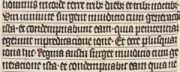 hominis in corde terre trib dieb et trib noctib
surgent in iudicio cum generacio
ista et condempnabunt eam quia penitenti
egerunt in predicacione ione Et ecce plusquam
iona hic Regina austri surget in iudicio cum ge
neracione ista et condempnabit eam quia